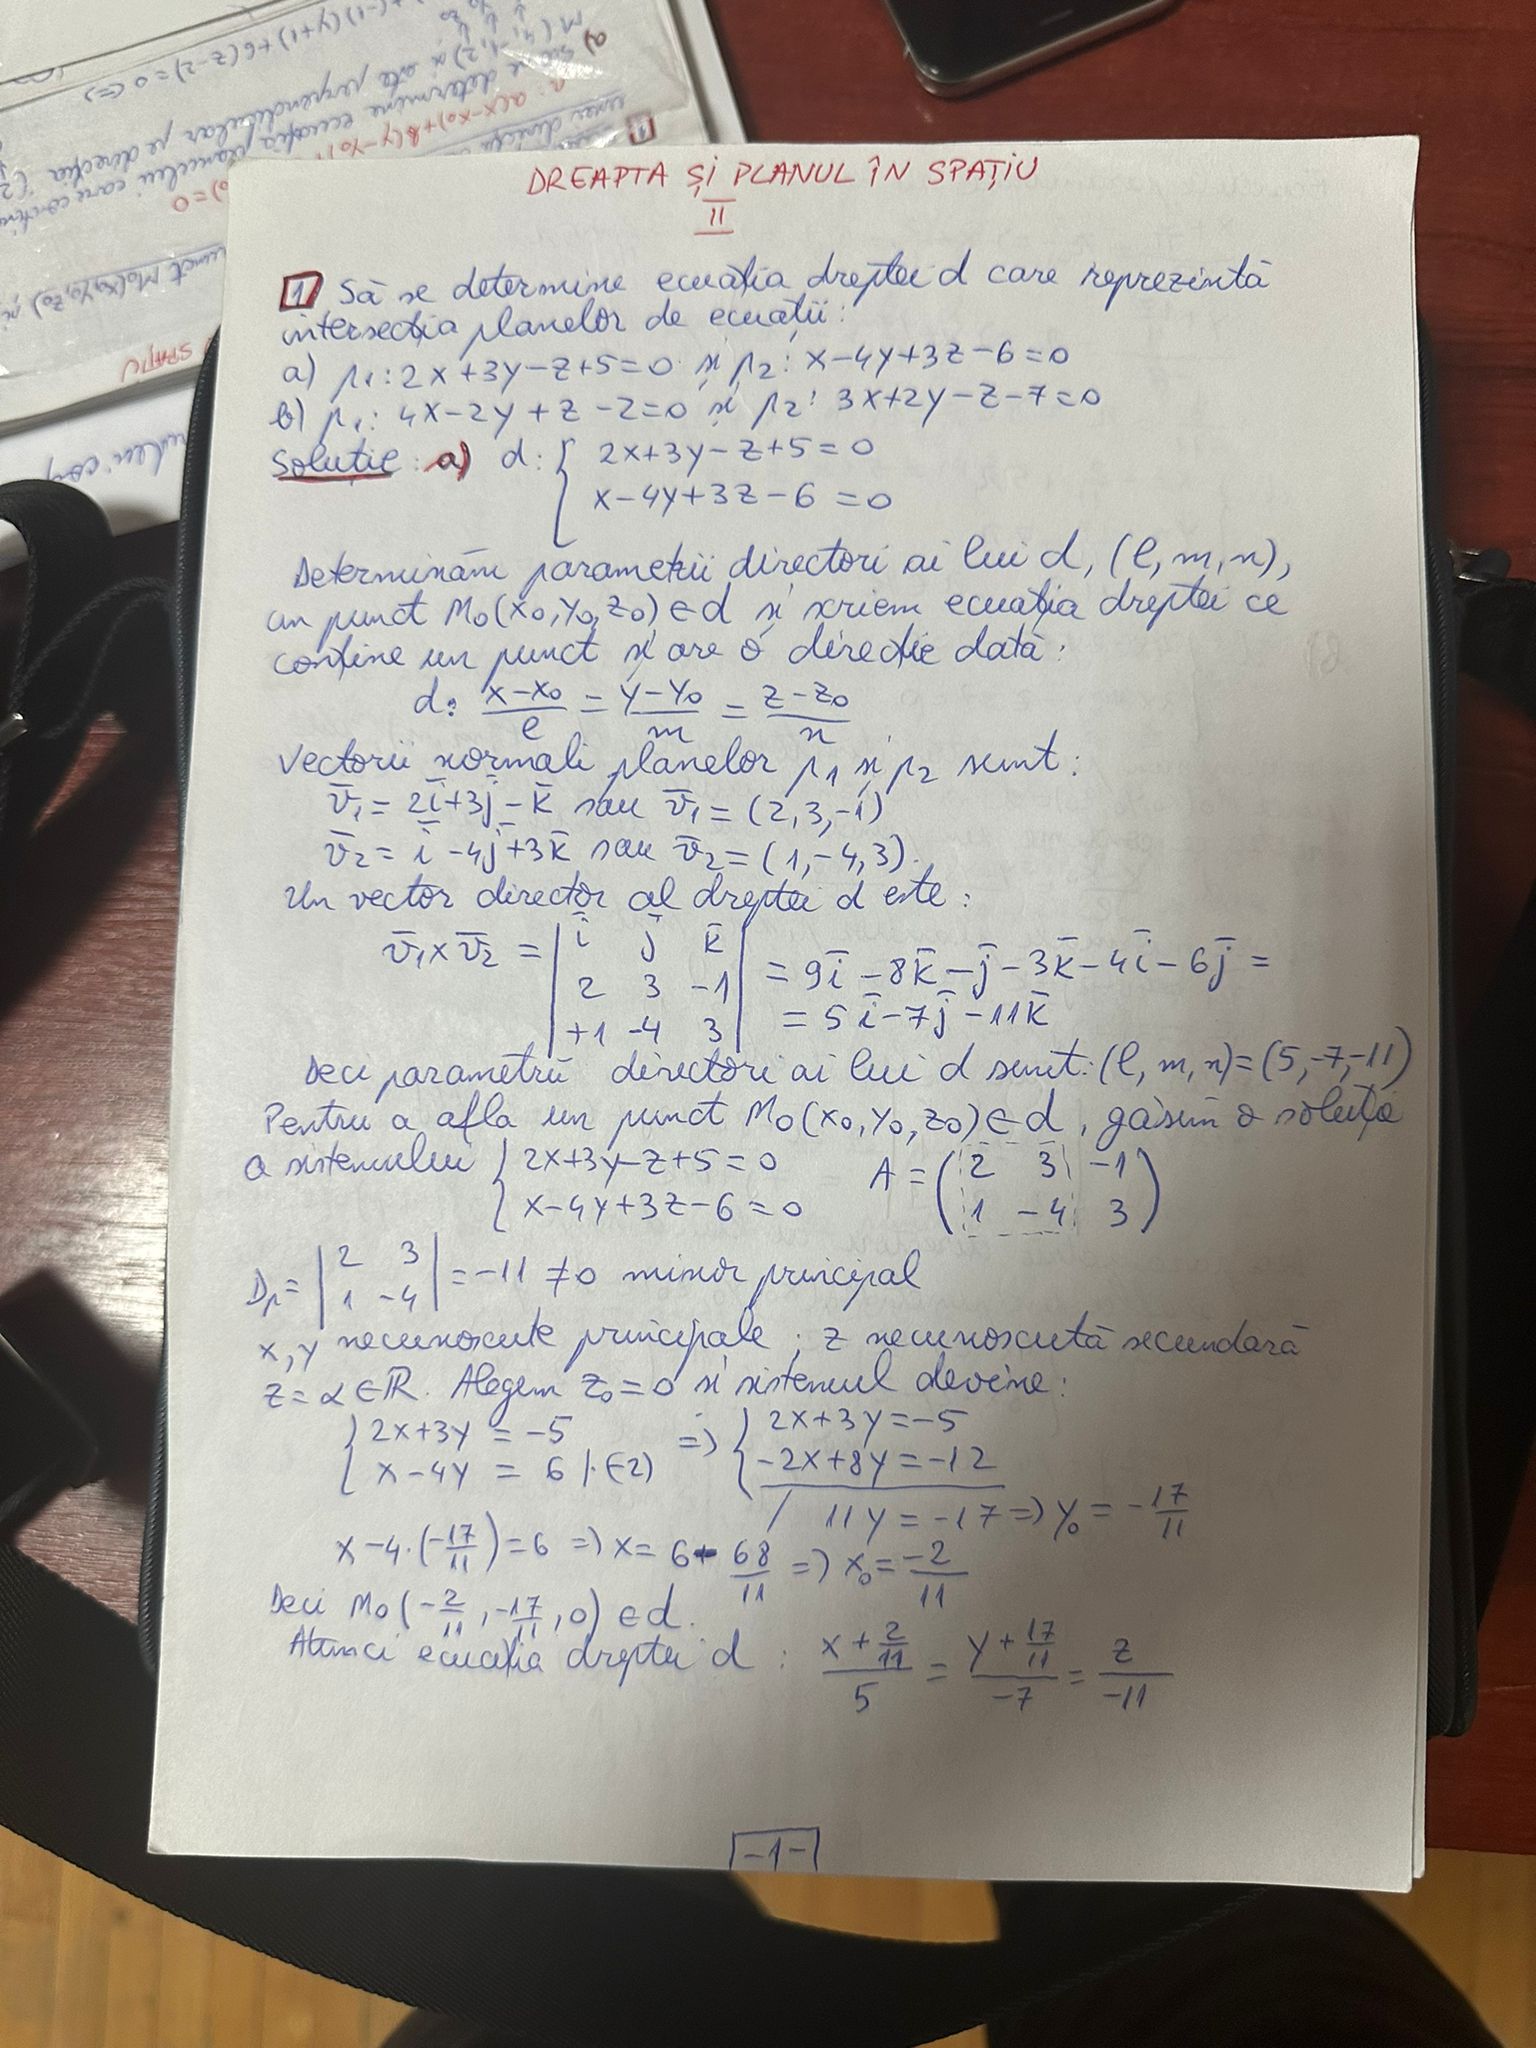 DREAPTA ȘI PLANUL ÎN SPAȚIU
II
1 Să se determine ecuația dreptei d care reprezintă
intersecția planelor de ecuații:
a) p₁: 2x+3y-z+5=0 și p₂: x-4y+3z-6=0
b) p₁: 4x-2y+z-2=0 și p₂: 3x+2y-z-7=0
Soluție: a) d: { 2x+3y-z+5=0
x-4y+3z-6=0
Determinăm parametrii directori ai lui d, (l,m,n),
un punct M₀(x₀,y₀,z₀)∈d și scriem ecuația dreptei ce
conține un punct și are o direcție dată:
d: (x-x₀)/l = (y-y₀)/m = (z-z₀)/n
Vectorii normali planelor p₁ și p₂ sunt:
v̄₁=2ī+3j̄-k̄ sau v̄₁=(2,3,-1)
v̄₂=ī-4j̄+3k̄ sau v̄₂=(1,-4,3).
Un vector director al dreptei d este:
v̄₁×v̄₂ = | ī j̄ k̄ |
| 2 3 -1 | = 9ī-8k̄-j̄-3k̄-4ī-6j̄ =
| +1 -4 3 | = 5ī-7j̄-11k̄
Deci parametrii directori ai lui d sunt: (l,m,n)=(5,-7,-11)
Pentru a afla un punct M₀(x₀,y₀,z₀)∈d, găsim o soluție
a sistemului { 2x+3y-z+5=0 A = ( 2 3 -1
x-4y+3z-6=0 1 -4 3 )
Dp = | 2 3 |
| 1 -4 | = -11 ≠0 minor principal
x,y necunoscute principale; z necunoscută secundară
z=α∈ℝ. Alegem z₀=0 și sistemul devine:
{ 2x+3y = -5 => { 2x+3y=-5
x-4y = 6 |·(-2) -2x+8y=-12
/ 11y=-17 => y₀ = -17/11
x-4·(-17/11)=6 => x= 6-68/11 => x₀=-2/11
Deci M₀(-2/11, -17/11, 0)∈d.
Atunci ecuația dreptei d : (x+2/11)/5 = (y+17/11)/-7 = z/-11
-1-